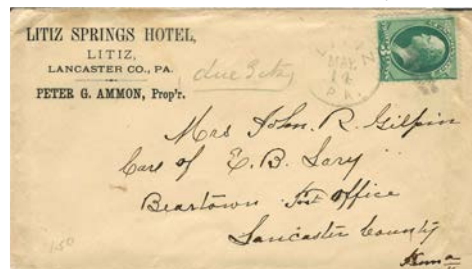 LITIZ SPRINGS HOTEL,
LITIZ,
LANCASTER CO., PA.
PETER G. AMMON, Prop'r.
due 3 cts
MAY
14
PA.
Mrs John. R. Gilpin
Care of E. B. Lory
Beartown Post Office
Lancaster County
Penna
150